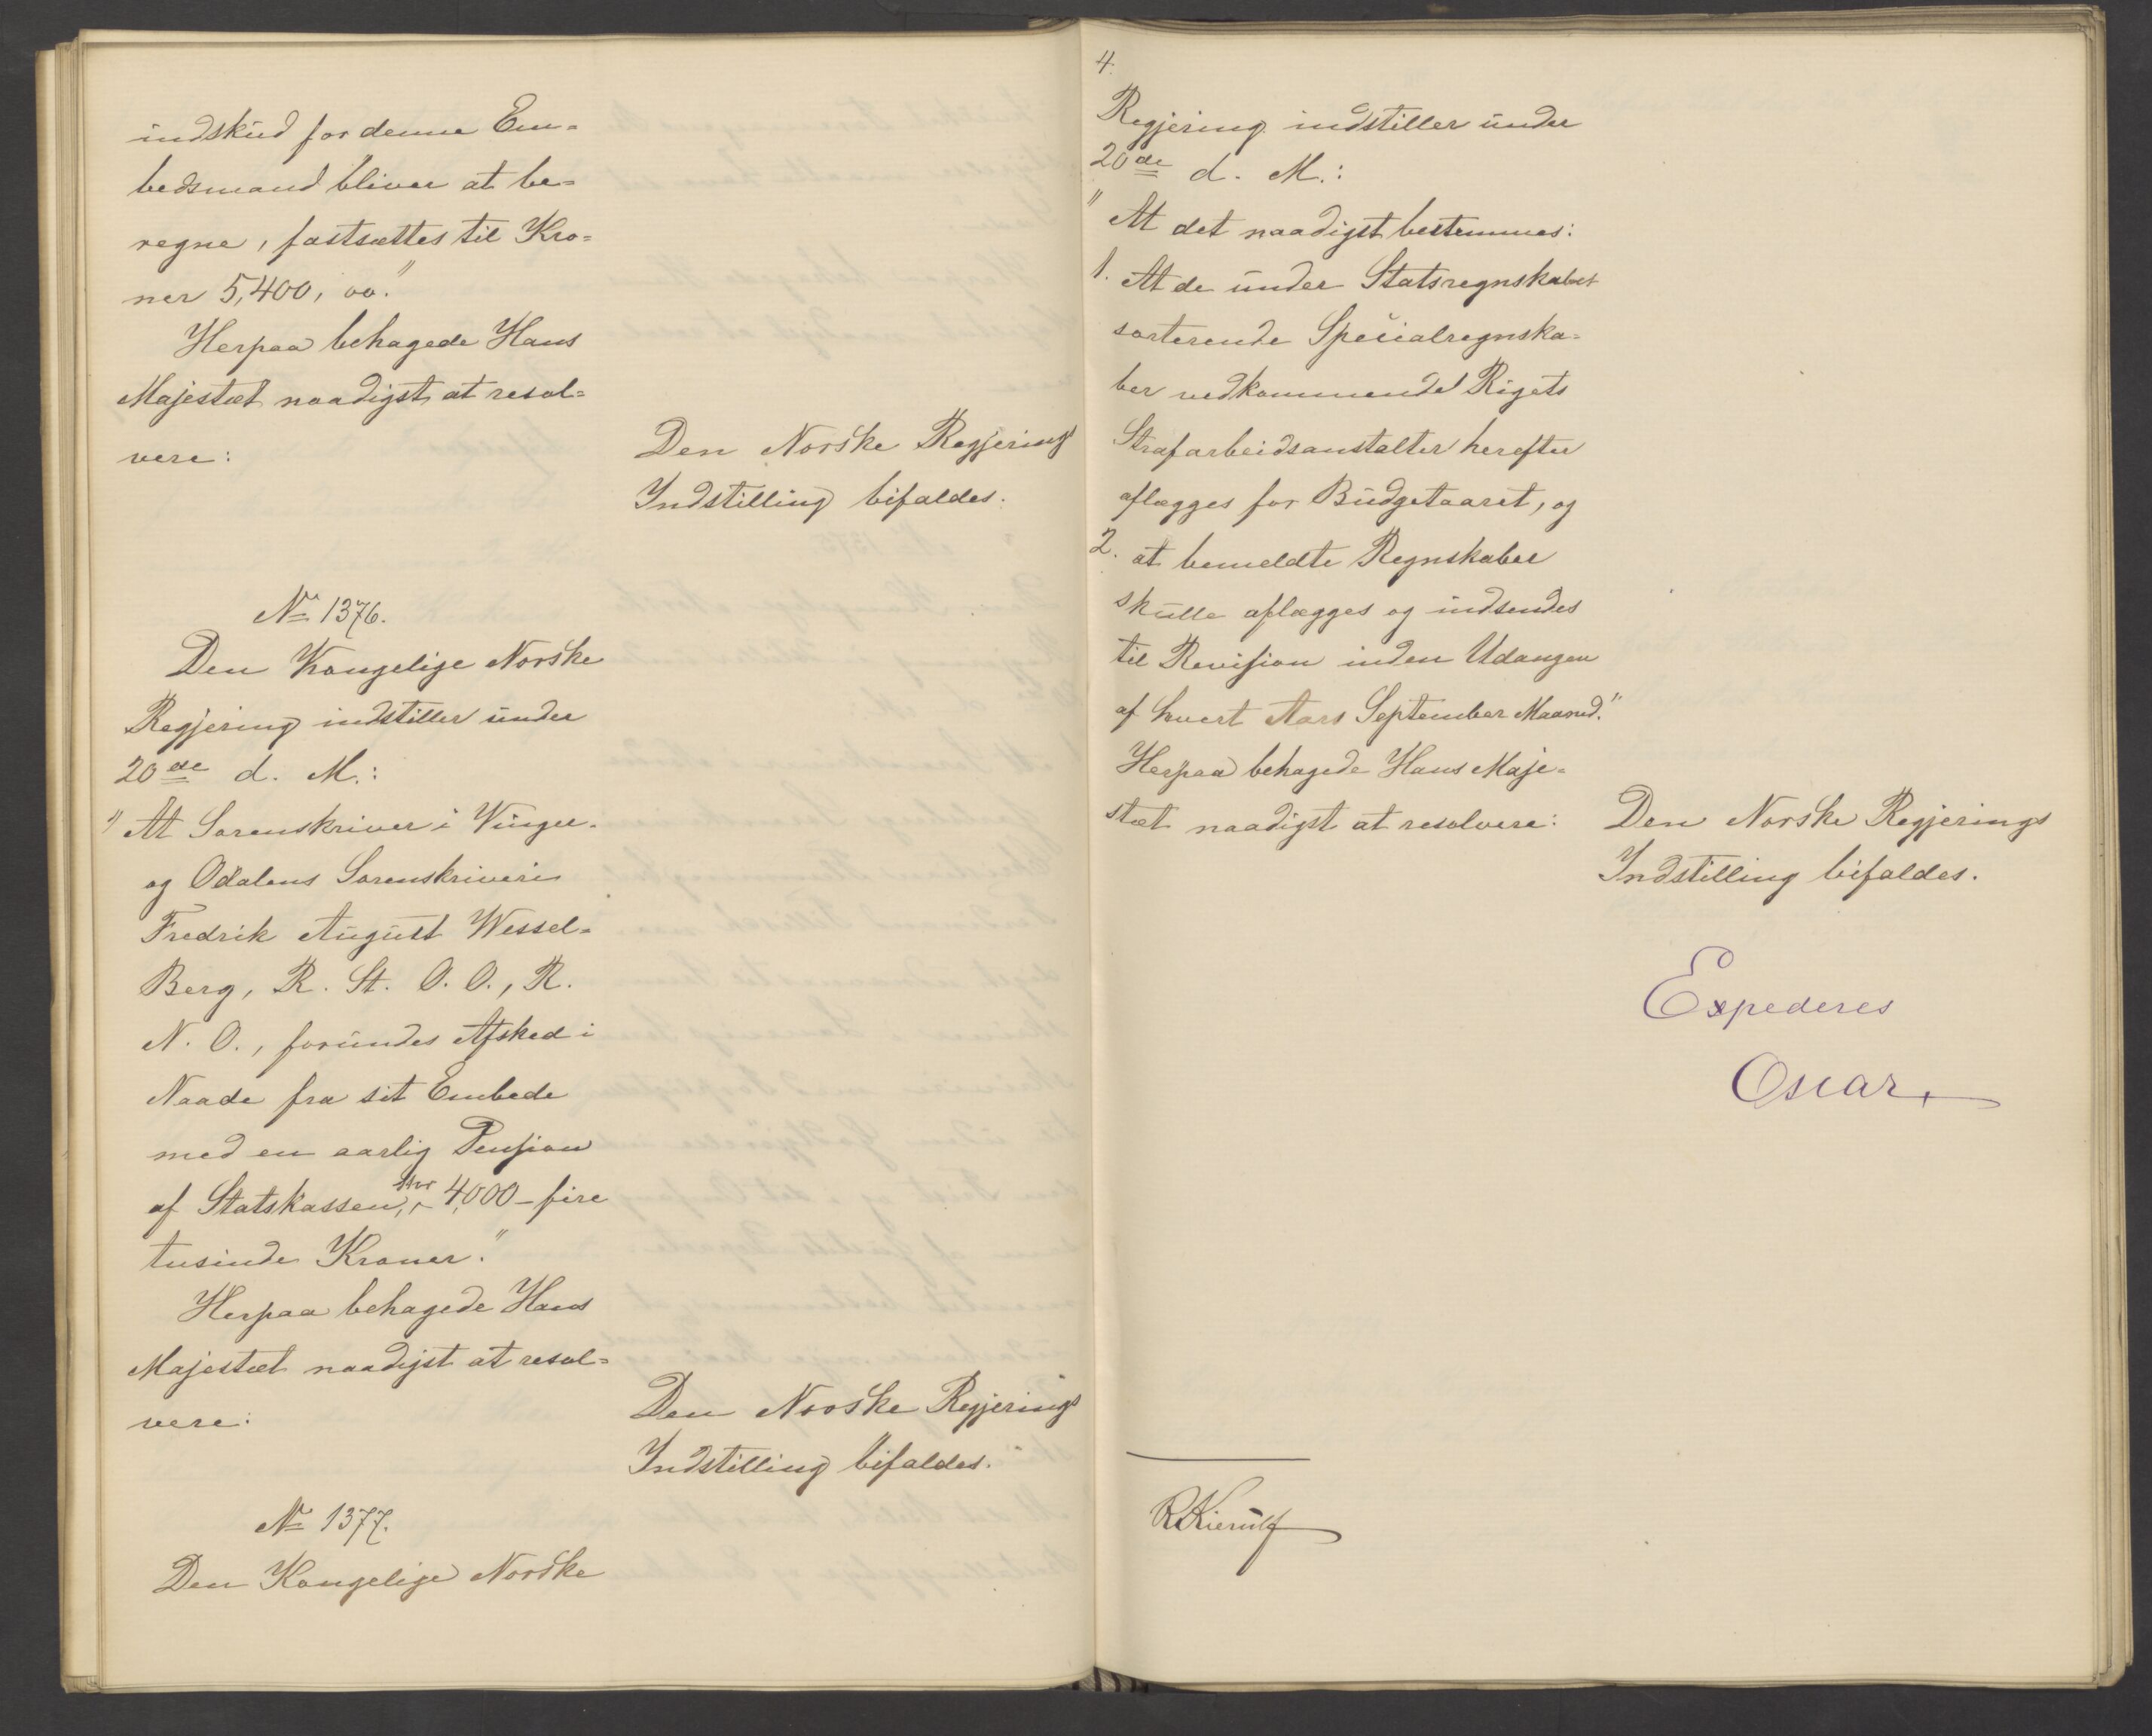 indskud for denne Em=
bedsmand bliver at be=
regne, fastsættes til Kro=
ner 5,400,00."
Herpaa behagede Hans
Majestæt naadigst at resol=
vere:
Den Norske Regjerings
Indstilling bifaldes.
No 1376.
Den Kongelige Norske
Regjering indstiller under
20de d. M.:
"At Sorenskriver i Vinger=
og Odalens Sorenskriveri
Fredrik August Wessel=
Berg, R. St. O. O., R.
N. O., forundes Afsked i
Naade fra sit Embede
med en aarlig Pension
af Statskassen, stor 4,000 - fire
tusinde Kroner."
Herpaa behagede Hans
Majestæt naadigst at resol=
vere:
Den Norske Regjerings
Indstilling bifaldes.
No 1377.
Den Kongelige Norske
4.
Regjering indstiller under
20de d. M.:
"At det naadigst bestemmes:
1. At de under Statsregnskabet
sorterende Specialregnska=
ber vedkommende Rigets
Strafarbeidsanstalter herefter
aflægges for Budgetaaret, og
2. at bemeldte Regnskaber
skulle aflægges og indsendes
til Revision inden Udangen
af hvert Aars September Maaned."
Herpaa behagede Hans Maje=
stæt naadigst at resolvere:
Den Norske Regjerings
Indstilling bifaldes.
Expederes
Oscar.
RKierulf